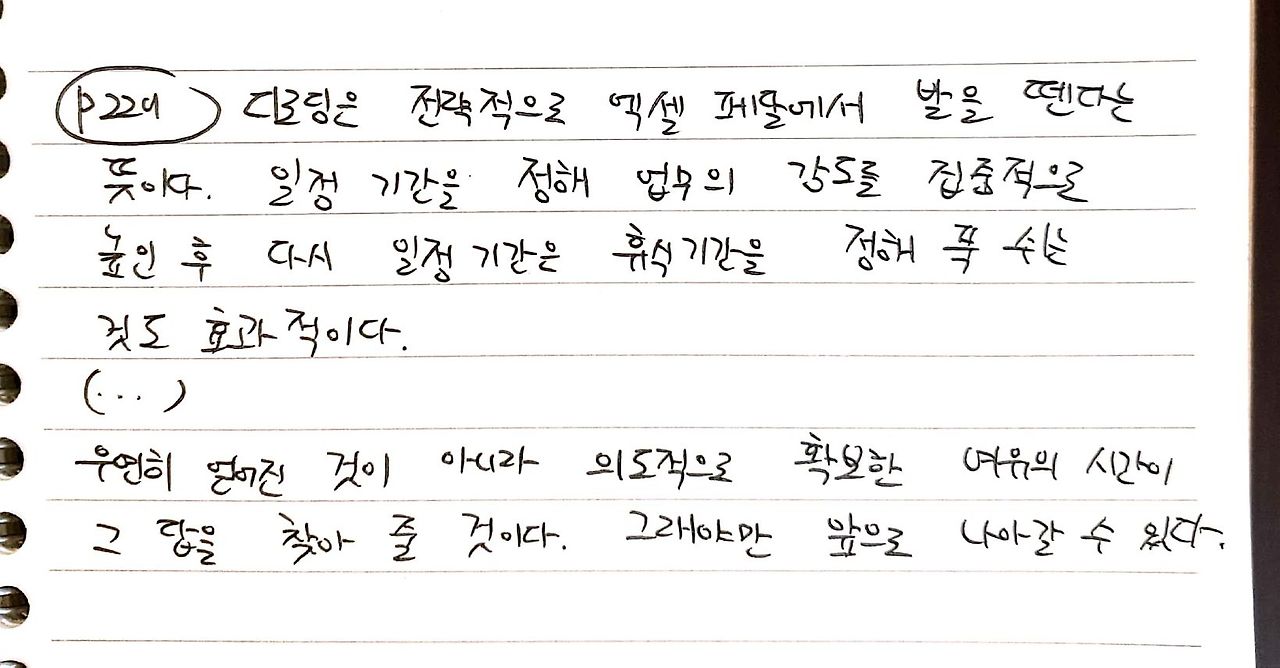 p229 디로딩은 전략적으로 엑셀 페달에서 발을 뗀다는
뜻이다. 일정 기간을 정해 업무의 강도를 집중적으로
높인 후 다시 일정 기간은 휴식기간을 정해 푹 쉬는
것도 효과적이다.
(...)
우연히 얻어진 것이 아니라 의도적으로 확보한 여유의 시간이
그 답을 찾아 줄 것이다. 그래야만 앞으로 나아갈 수 있다.